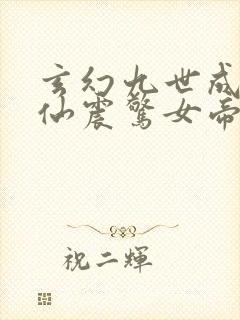 玄幻九世成
仙震驚女帝
祝二輝